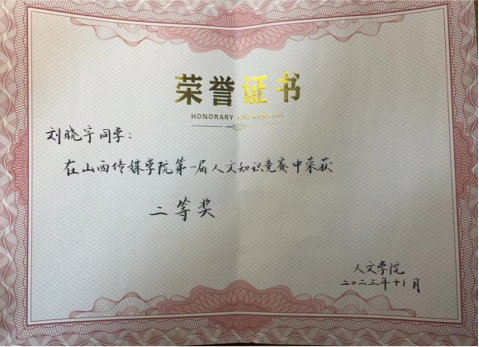 荣誉证书
HONORARY CREDENTIAL
刘晓宇同学：
在山西传媒学院第一届人文知识竞赛中荣获
二等奖
人文学院
二〇二三年十一月